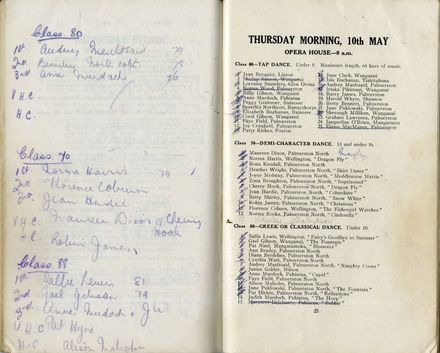 Class. 80
1st Audrey Maultsaid 79
2nd Beverley North cott 78
3rd Anne Murdoch 76
V.H.C.
H.C.
Class. 70
1st Norma Harris 79
2nd Florence Coburn
3rd Jean Hardie
V.H.C. Maureen Dixon & Cherry Hook
H.C. Robin James.
Class. 88
1st Sallie Lewis 81
2nd Gael Gibson 79
3rd Anne Murdoch
V H C Pat Hyne
H.C Alison Malcolm
THURSDAY MORNING, 10th MAY
OPERA HOUSE—9 a.m.
Class 80—TAP DANCE. Under 8. Maximum length, 64 bars of music.
Jean Berquist, Linton
Lorraine Saunders, Glen Oroua
Norma Wood, Palmerston
Billie Gibson, Wanganui
Anne Murdoch, Pahiatua
Peggy Grabham, Buinnse
Beverley Northcott, Bunnythorpe
Elizabeth Buchanan, Buinnse
Coral Gibson, Wanganui
Faye Field, Palmerston
Joy Cranfield, Palmerston
Patty Riches, Foxton
June Clark, Wanganui
Isla Buchanan, Tiakitahuna
Audrey Maultsaid, Palmerston
Iriaka Pakinui, Wanganui
Barry James, Palmerston
Harold Whyte, Shannon
Betty Bennett, Palmerston
June Puklowski, Palmerston
Shereagh Milliken, Wanganui
Graham Laurenson, Palmerston
Jacqueline O'Brien, Mangaweka
Elaine MacManus, Palmerston
Class 70—DEMI-CHARACTER DANCE. 13 and under 16.
Maureen Dixon, Palmerston North
Norma Harris, Wellington, "Dragon Fly"
Rona Kendall, Palmerston North
Heather Wright, Palmerston North, "Skirt Dance"
Joyce Nedway, Palmerston North, "Meddlesome Mattie"
Zona Broughton, Palmerston North, "Leapfrog"
Cherry Hook, Palmerston North, "Dragon Fly"
Jean Hardie, Palmerston North, "Columbine"
Betty Shirley, Palmerston North, "Snow White"
Robin James, Palmerston North, "Christmas"
Florence Coburn, Wellington, "The Fullergirl Watches"
Norma Rooks, Palmerston North, "Cinderella"
Class 88—GREEK OR CLASSICAL DANCE. Under 10.
Sallie Lewis, Wellington, "Fairy's Goodbye to Summer"
Gael Gibson, Wanganui, "The Fountain"
Pat Nind, Mangatainoka, "Blossom"
Ann Bradey, Palmerston North
Diana Berdebes, Palmerston North
Cynthia Watt, Palmerston North
Audrey Maultsaid, Palmerston North, "Naughty Canna"
Janice Gelder, Milson
Anne Murdoch, Pahiatua, "Cupid"
Faye Field, Palmerston North
Alison Malcolm, Palmerston North
June Puklowski, Palmerston North, "The Fountain"
Pat Hickin, Palmerston North, "Reflections"
Judith Murdoch, Pahiatua, "The Hoop"
25